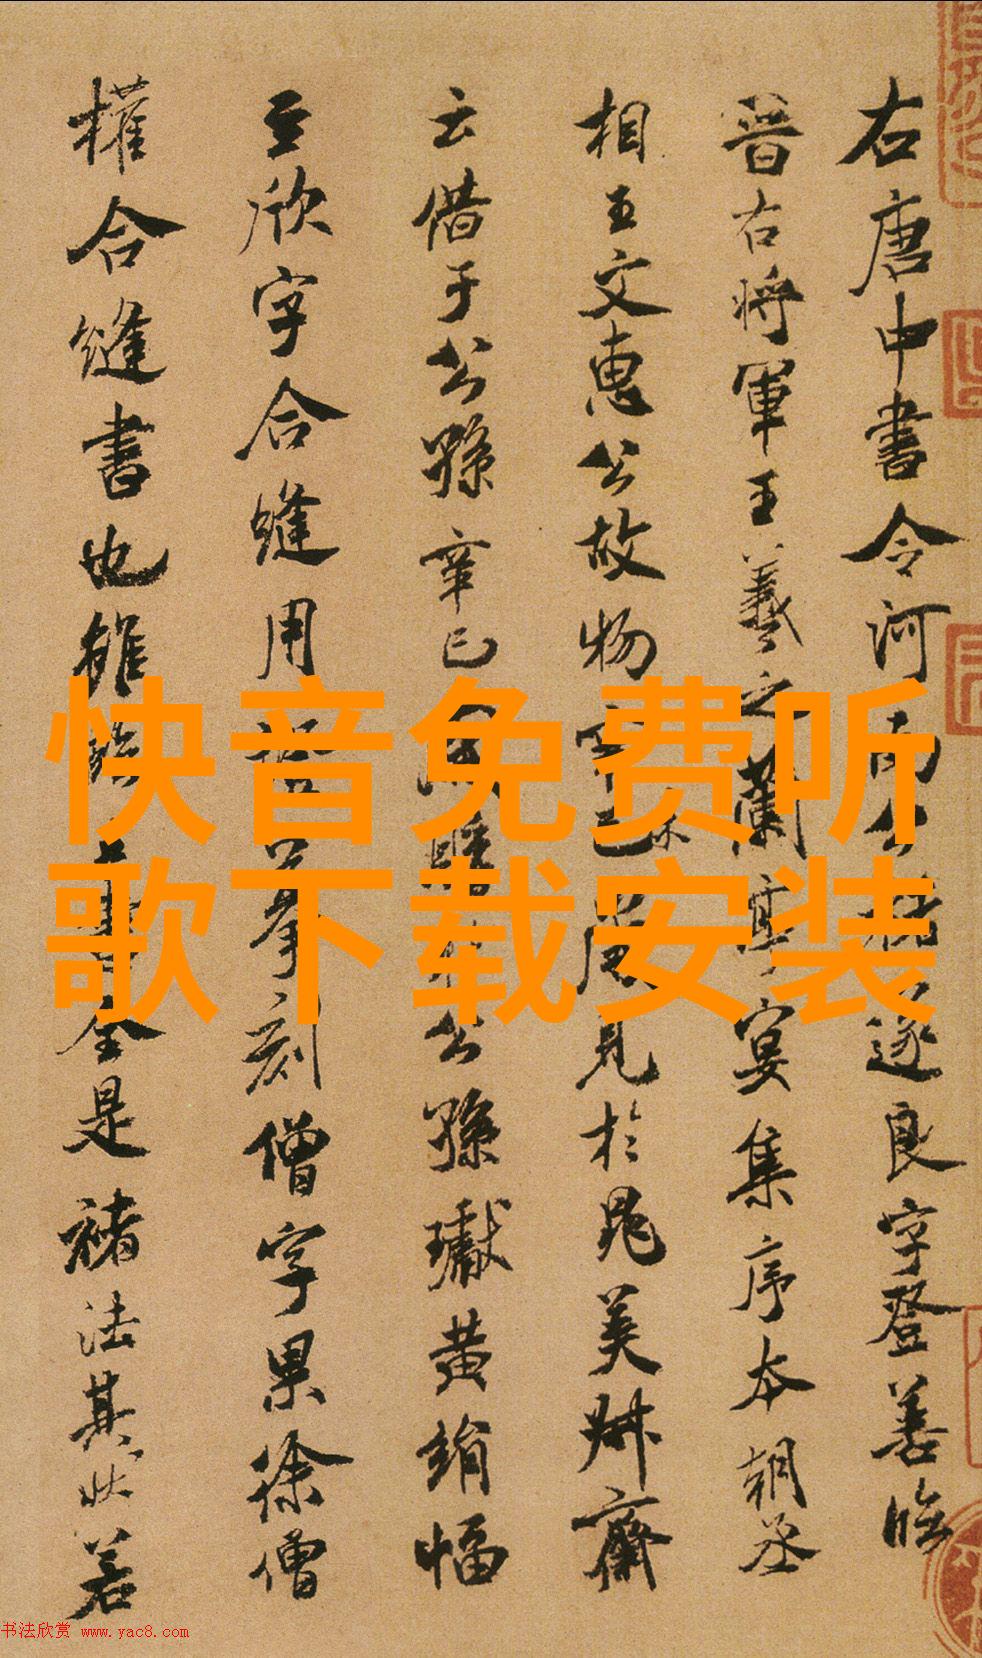 右唐中書令河南公褚遂良字登善臨
晉右將軍王羲之蘭亭宴集序本朝丞
相王文惠公故物 見於晁美叔齋
云借于公孫辛巳 公孫瓛黃絹幅
至欣字合縫用 摹刻僧字果徐僧
權合縫書也雖 全是褚法其狀若
快音免费听
歌下载安装
书法欣赏 www.yac8.com